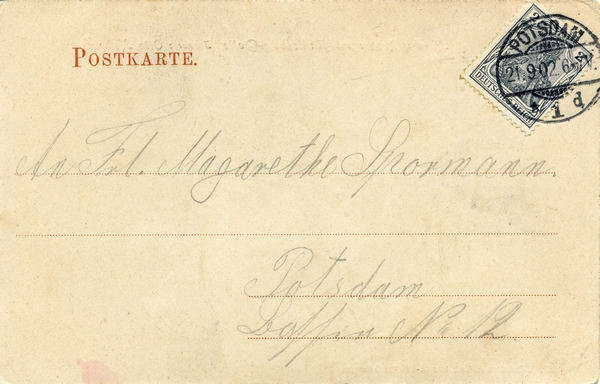 POSTKARTE.
POTSDAM
21.9.02.6
DEUTSCHES REICH
1 d
An Frl. Magarethe Spormann.
Potsdam
No 12.